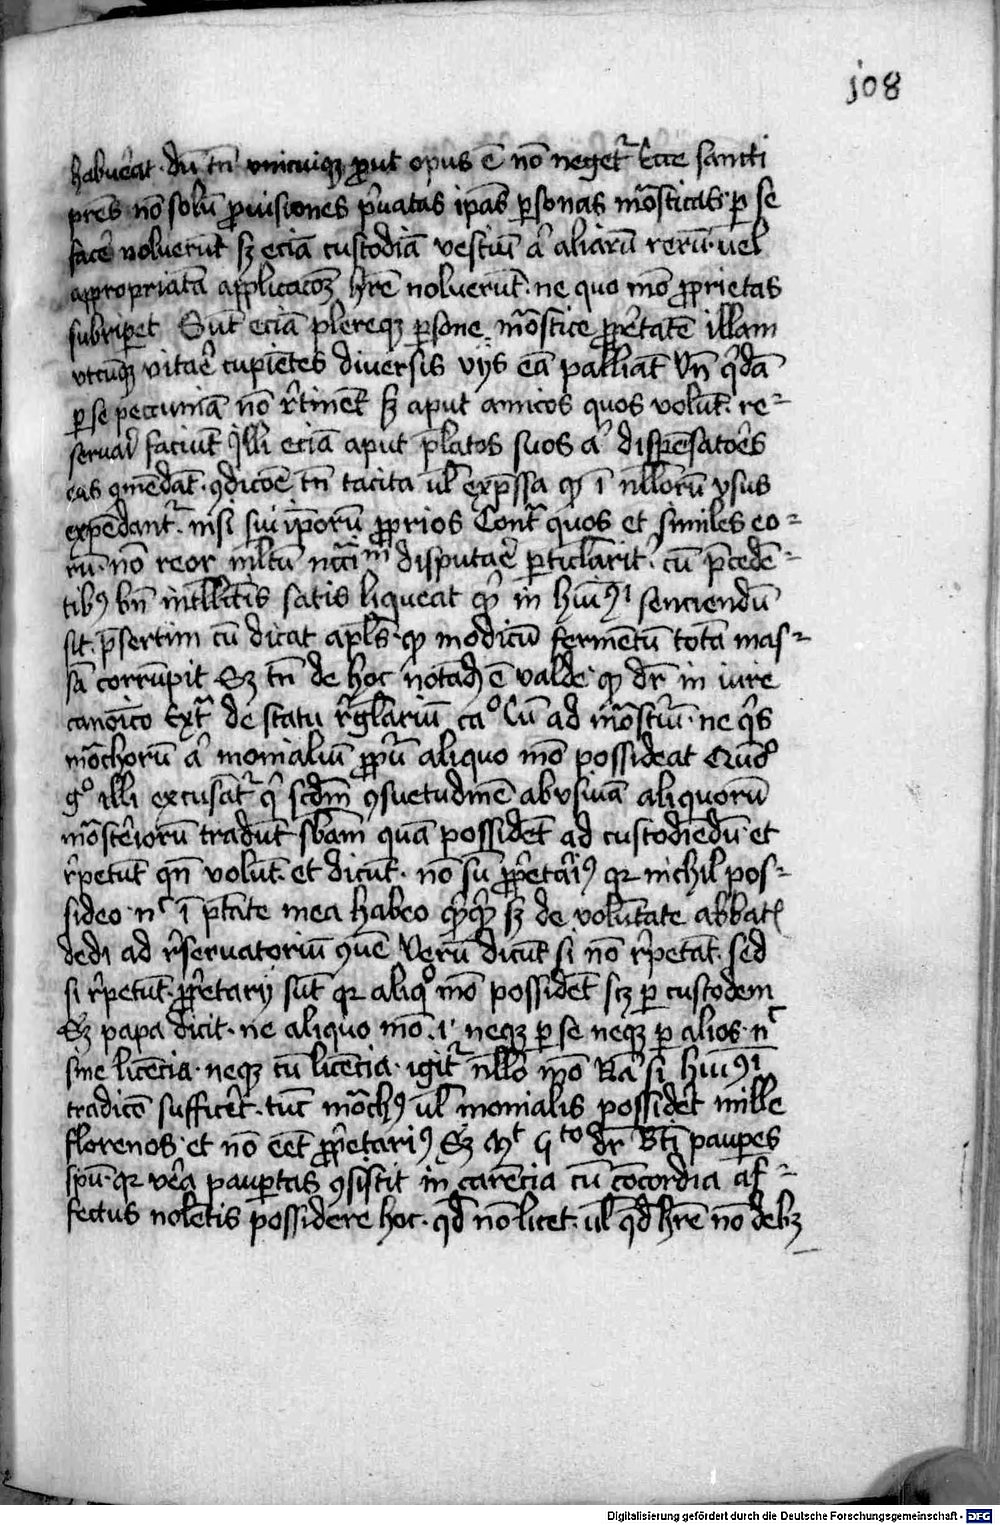 j08
habuerat · dū tn̄ vnicuiqꝫ ꝓut opus ē nō neget᷑ Ecce sancti
pr̄es nō solū ꝓuisiones p͛uatas ip̄as ꝑsonas mo᷑sticas · ꝑ se
fac͛e noluerūt sꝫ eciā custodiā vestiū a͛ aliarū rerū · uel
appropriatā applicacōꝫ hr̄e noluerūt · ne quo mō ꝓprietas
subripet Sūt eciā plereqꝫ ꝑsone mo᷑stice ꝓp͛etatē illam
vtcūqꝫ vitar͛ cupiētes diuersis vijs eā palliāt Vn̄ q͛dā
ꝑ se peccuniā nō r͛tinēt sꝫ aput amicos quos volūt · re-
seruar͛ faciūt illi eciā aput p̄latos suos a͛ dispēsator͛es
eas ꝯmēdāt · ꝯdicōe tn̄ tacita ul̄ exp̄ssa ꝙ ī nll̄orū vsus
expēdant᷑ · nisi sui ip̄orū ꝓprios Cont᷑ quos et similes eo-
rū · nō reor mltū disputar͛e ꝑticlarit͛ · cū p̄cedē-
tibꝰ bn̄ intll̄ctis satis liqueat qͥ in hiuꝰi senciendū
sit · p̄sertim cū dicat apl̄s · ꝙ modicū fermētū totā mas-
sā corrūpit Sꝫ tn̄ de hoc notād ē valde · ꝙ dr̄ in iure
canoīco Ext᷑ de statu r͛glariū caᵒ Cū ad mo᷑st͛iū · ne q͛s
mo᷑chorū a͛ monialiū ꝓp͛ū aliquo mō possideat
gᵒ illi excusāt᷑ qͥ scdm̄ ꝯsuetudinē abusiuā aliquorū
mo᷑ster͛iorū tradūt sb̄am quā possidēt ad custodiēdū et
r͛petūt qn̄ volūt · et dicūt · nō sū ꝓp͛etariꝰ qr nichil pos-
sideo · nᶜ ī ptāte mea habeo sꝫ de volūtate abbatꝭ
dedi ad r͛seruatoriū ꝯuē Verū dicūt si nō r͛petāt · sed
si r͛petūt · ꝓp͛etarij sūt qr aliqᵒ mō possidēt scꝫ ꝑ custodem
Sꝫ papa dicit · ne aliquo mō · i · neqꝫ ꝑ se neqꝫ ꝑ alios · nᶜ
sine licēcia · neqꝫ cū licēcia · igit᷑ nll̄o mō Nā si hiuꝰi
tradicō suffic͛et · tūc mo᷑chꝰ ul̄ monialis possidet mille
florenos · et nō eēt ꝓp͛etariꝰ Sꝫ Mᵗ qᵗᵒ dr̄ Bt̄i paupes
spū · qr vēa paupertas ꝯsistit in carēcia cū cōcordia af-
fectus nolētis possidere hoc · qd̄ nō licet · ul̄ qd̄ hr̄e nō debꝫ
Digitalisierung gefördert durch die Deutsche Forschungsgemeinschaft - DFG